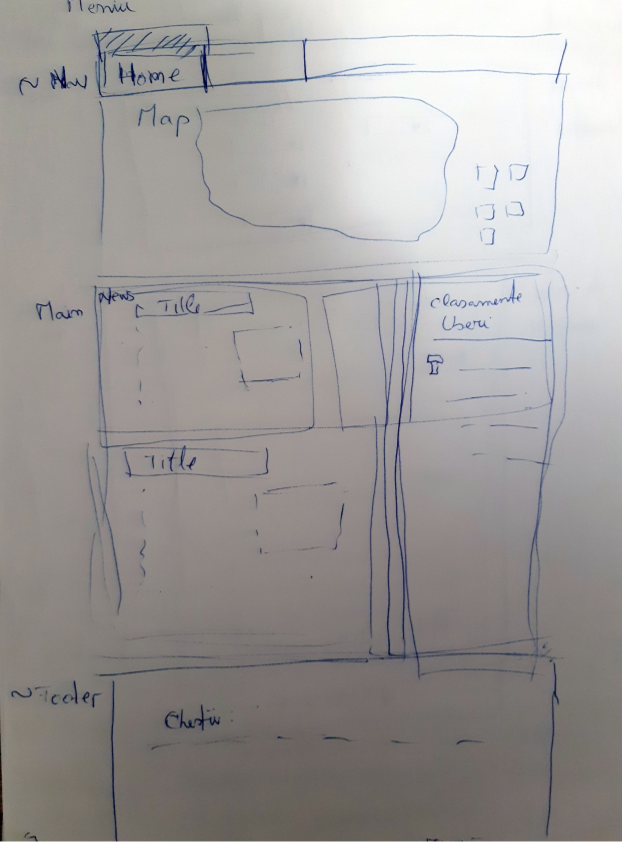 Meniu
~ Nav
Home
Map
Main
News
Title
Clasamente
Useri
Title
~ Footer